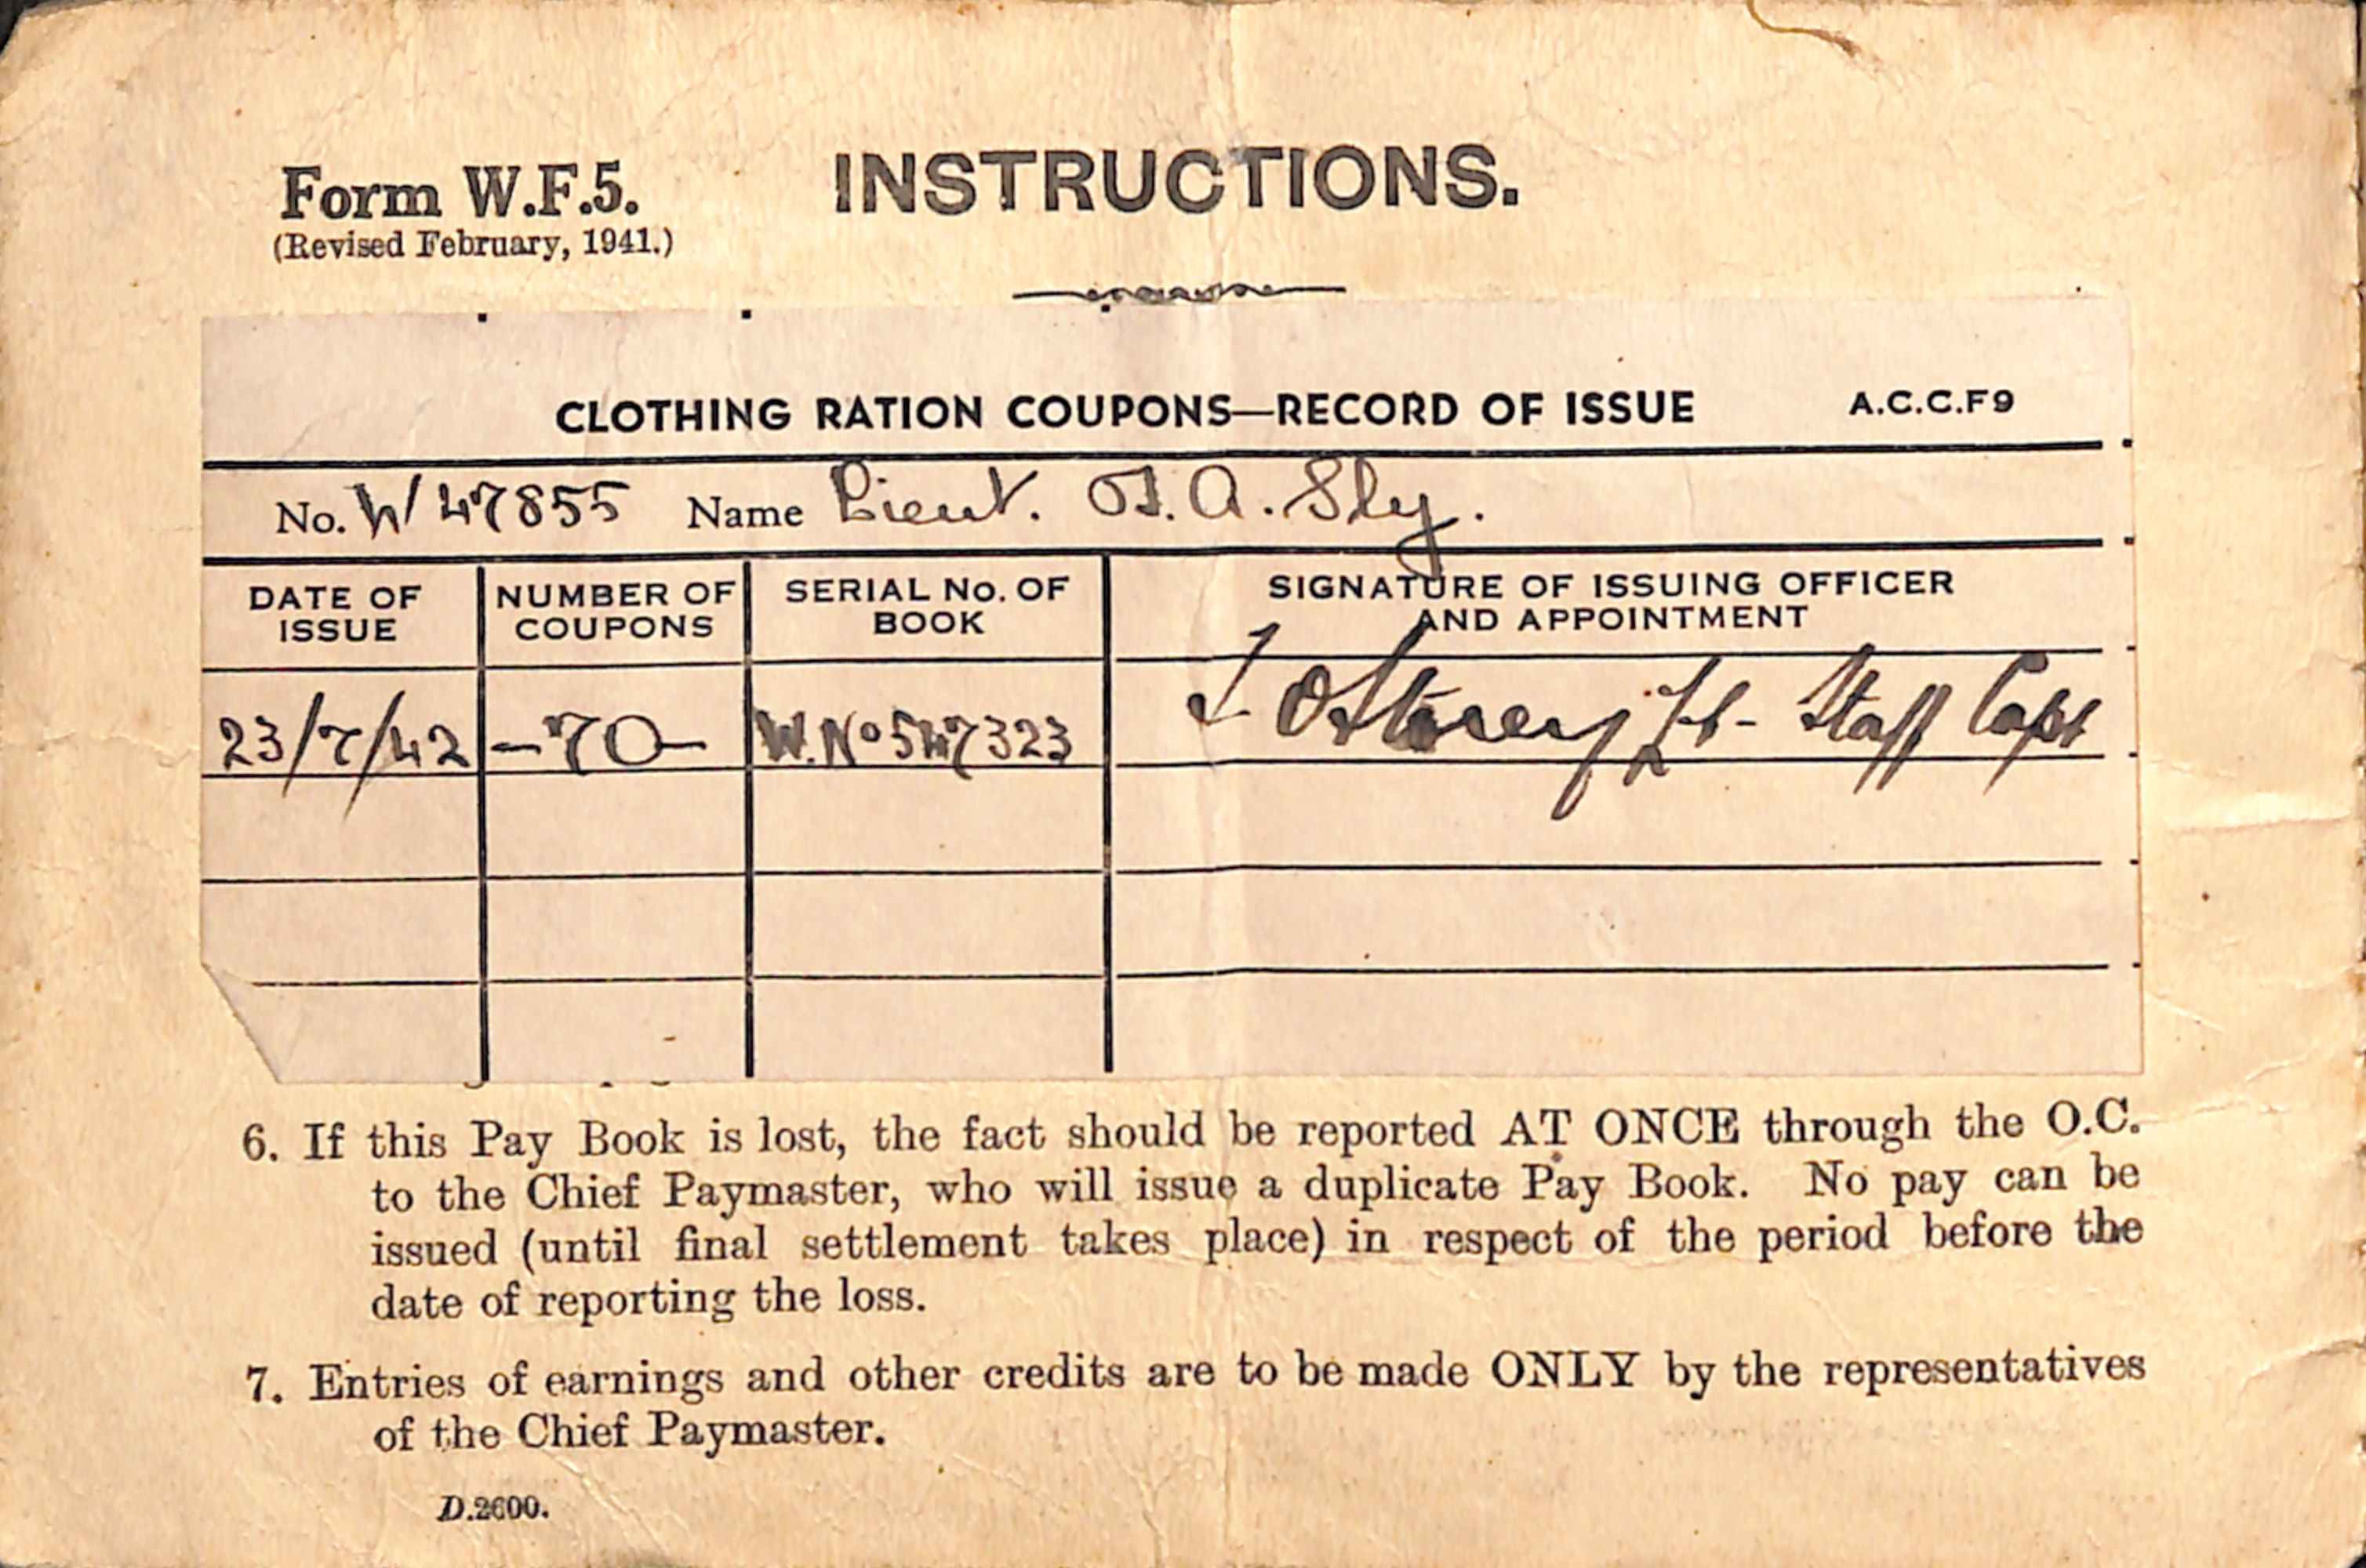 Form W.F.5.
INSTRUCTIONS.
(Revised February, 1941.)
CLOTHING RATION COUPONS—RECORD OF ISSUE A.C.C.F9
No. W/47855 Name Lieut. A. Sly.
DATE OF ISSUE
NUMBER OF COUPONS
SERIAL No. OF BOOK
SIGNATURE OF ISSUING OFFICER AND APPOINTMENT
23/7/42 -70- W.No 547323 Staff Capt
6. If this Pay Book is lost, the fact should be reported AT ONCE through the O.C.
to the Chief Paymaster, who will issue a duplicate Pay Book. No pay can be
issued (until final settlement takes place) in respect of the period before the
date of reporting the loss.
7. Entries of earnings and other credits are to be made ONLY by the representatives
of the Chief Paymaster.
D.2600.